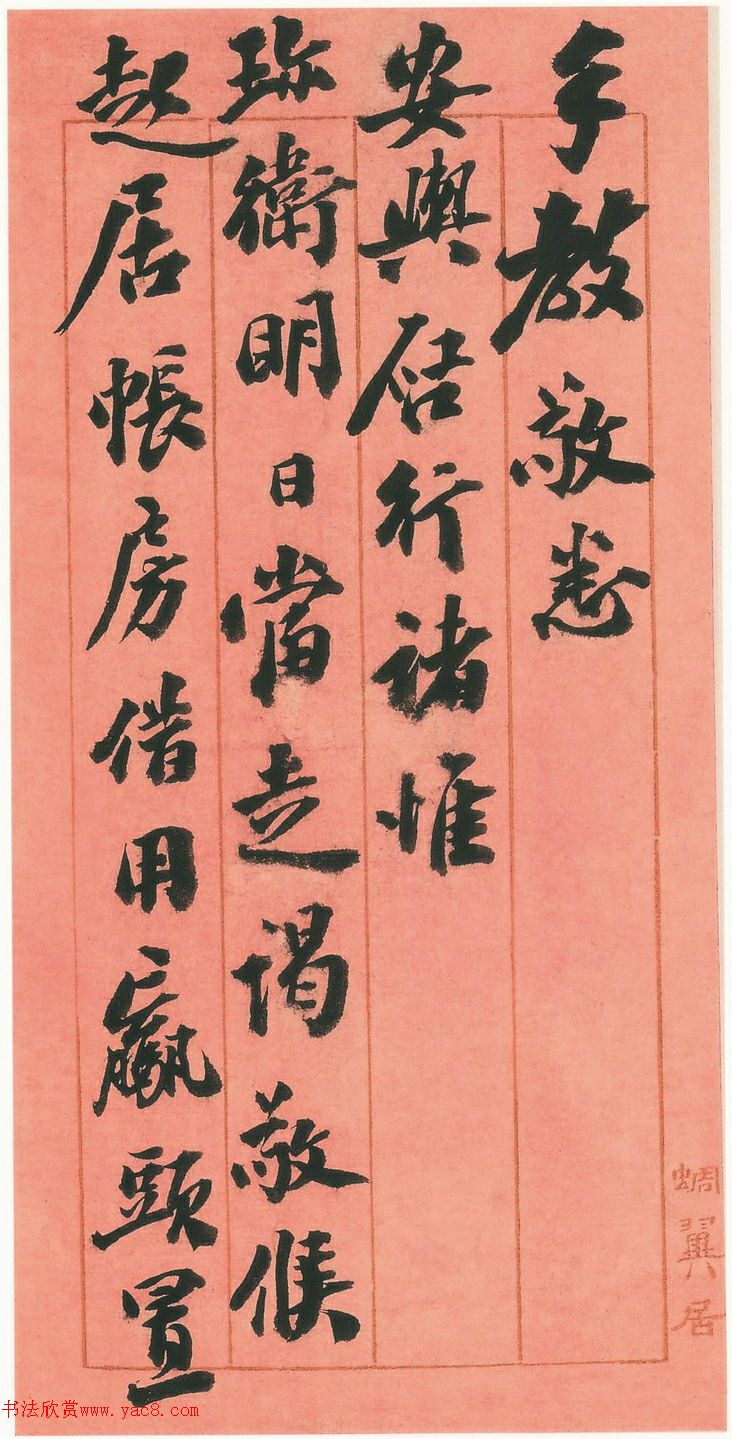 手教敬悉
安輿啟行諸惟
珍衛明日當走謁敬候
起居帳房借用嬴頭置
蜩翼居
书法欣赏www.yac8.com